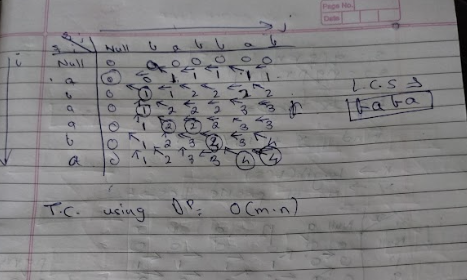 Page No.
Date
j
i
Null b a b b a b
Null 0 0 0 0 0 0 0
a 0 0 1 1 1 1 1
b 0 1 1 2 2 2 2
a 0 1 2 2 2 3 3
a 0 1 2 2 2 3 3
b 0 1 2 3 3 3 4
a 0 1 2 3 3 4 4
L.C.S ⇒
baba
T.C. using DP: O(m·n)